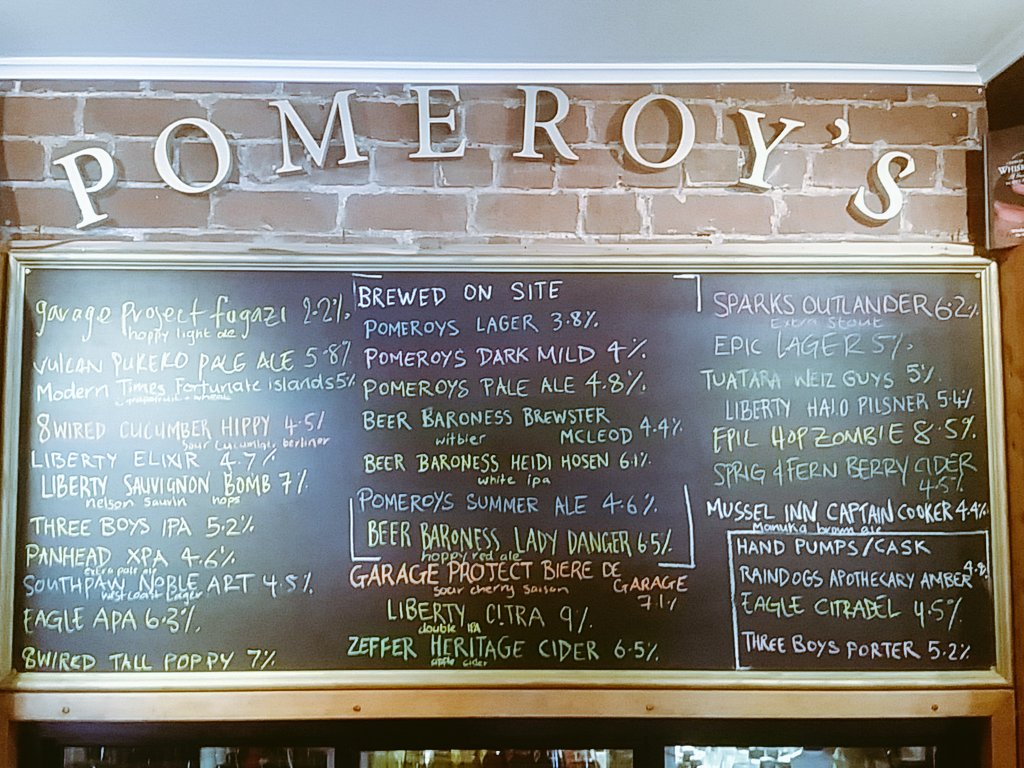 POMEROY'S
garage Project fugazi 2.2%
hoppy light ale
VULCAN PUKEKO PALE ALE 5.8%
Modern Times Fortunate islands 5%
8WIRED CUCUMBER HIPPY 4.5%
sour cucumber berliner
LIBERTY ELIXIR 4.7%
LIBERTY SAUVIGNON BOMB 7%
nelson sauvin hops
THREE BOYS IPA 5.2%
PANHEAD XPA 4.6%
extra pale ale
SOUTHPAW NOBLE ART 4.5%
west coast lager
EAGLE APA 6.3%
8WIRED TALL POPPY 7%
BREWED ON SITE
POMEROYS LAGER 3.8%
POMEROYS DARK MILD 4%
POMEROYS PALE ALE 4.8%
BEER BARONESS BREWSTER
witbier MCLEOD 4.4%
BEER BARONESS HEIDI HOSEN 6.1%
white ipa
POMEROYS SUMMER ALE 4.6%
BEER BARONESS LADY DANGER 6.5%
hoppy red ale
GARAGE PROJECT BIERE DE
sour cherry saison GARAGE
7.1%
LIBERTY CITRA 9%
double IPA
ZEFFER HERITAGE CIDER 6.5%
apple cider
SPARKS OUTLANDER 6.2%
Extra Stout
EPIC LAGER 5%
TUATARA WEIZ GUYS 5%
LIBERTY HALO PILSNER 5.4%
EPIC HOP ZOMBIE 8.5%
SPRIG & FERN BERRY CIDER
4.5%
MUSSEL INN CAPTAIN COOKER 4.4%
Manuka brown ale
HAND PUMPS/CASK
RAINDOGS APOTHECARY AMBER 4.8%
EAGLE CITRADEL 4.5%
THREE BOYS PORTER 5.2%